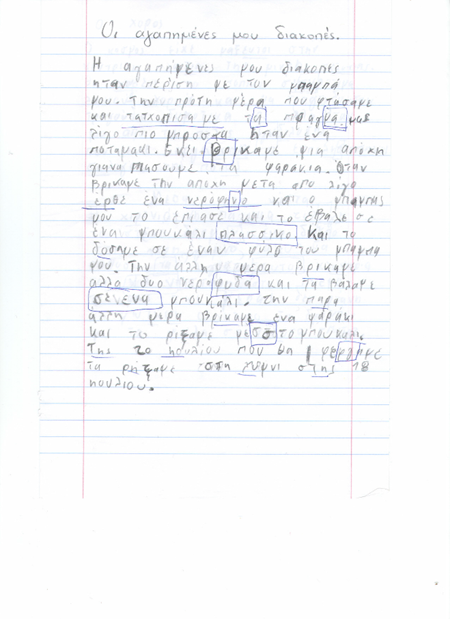 Οι αγαπημένες μου διακοπές.
Η αγαπήμενες μου διακοπές
ηταν πέριση με τον μπαμπά
μου. την πρότη μέρα που φτασαμε
και τατχοπισα με τα πραγμα μας
λίγο πιο μπροστα ηταν ένα
ποταμακι. Εκει βρικαμε μια απόχη
για να πιασουμε τα ψαράκια. Όταν
βρικαμε την απόχη μετα απο λίγο
ερθε ένα νερόφηδο και ο μπαμπας
μου το έπιασε και το έβαλε σε
ένα μπουκάλι πλασσικο. Και το
δόσημε σε έναν φυλο του μπαμπα
μου. Την άλλη μερα βρικαμε
αλλα δυο νεροφυδα και τα βάλαμε
σε ένα μπουκάλι. την παρα
άλλη μερα βρίκαμε ένα ψαρακι
και το ριξαμε μέσα στο μπουκαλι.
Της 20 ηουλίου που θη
τα ριξαμε στη λημνι στης 18
ηουλιου.